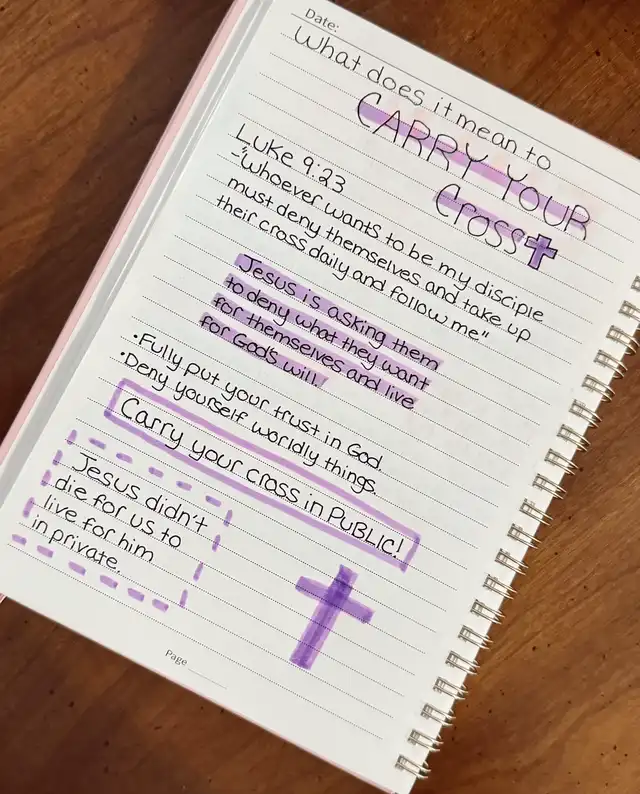 Date:
What does it mean to
CARRY YOUR
Cross
Luke 9:23
-"Whoever wants to be my disciple
must deny themselves and take up
their cross daily and follow me"
Jesus is asking them
to deny what they want
for themselves and live
for God's will.
•Fully put your trust in God.
•Deny yourself worldly things.
Carry your cross in PUBLIC!
Jesus didn't
die for us to
live for him
in private.
Page